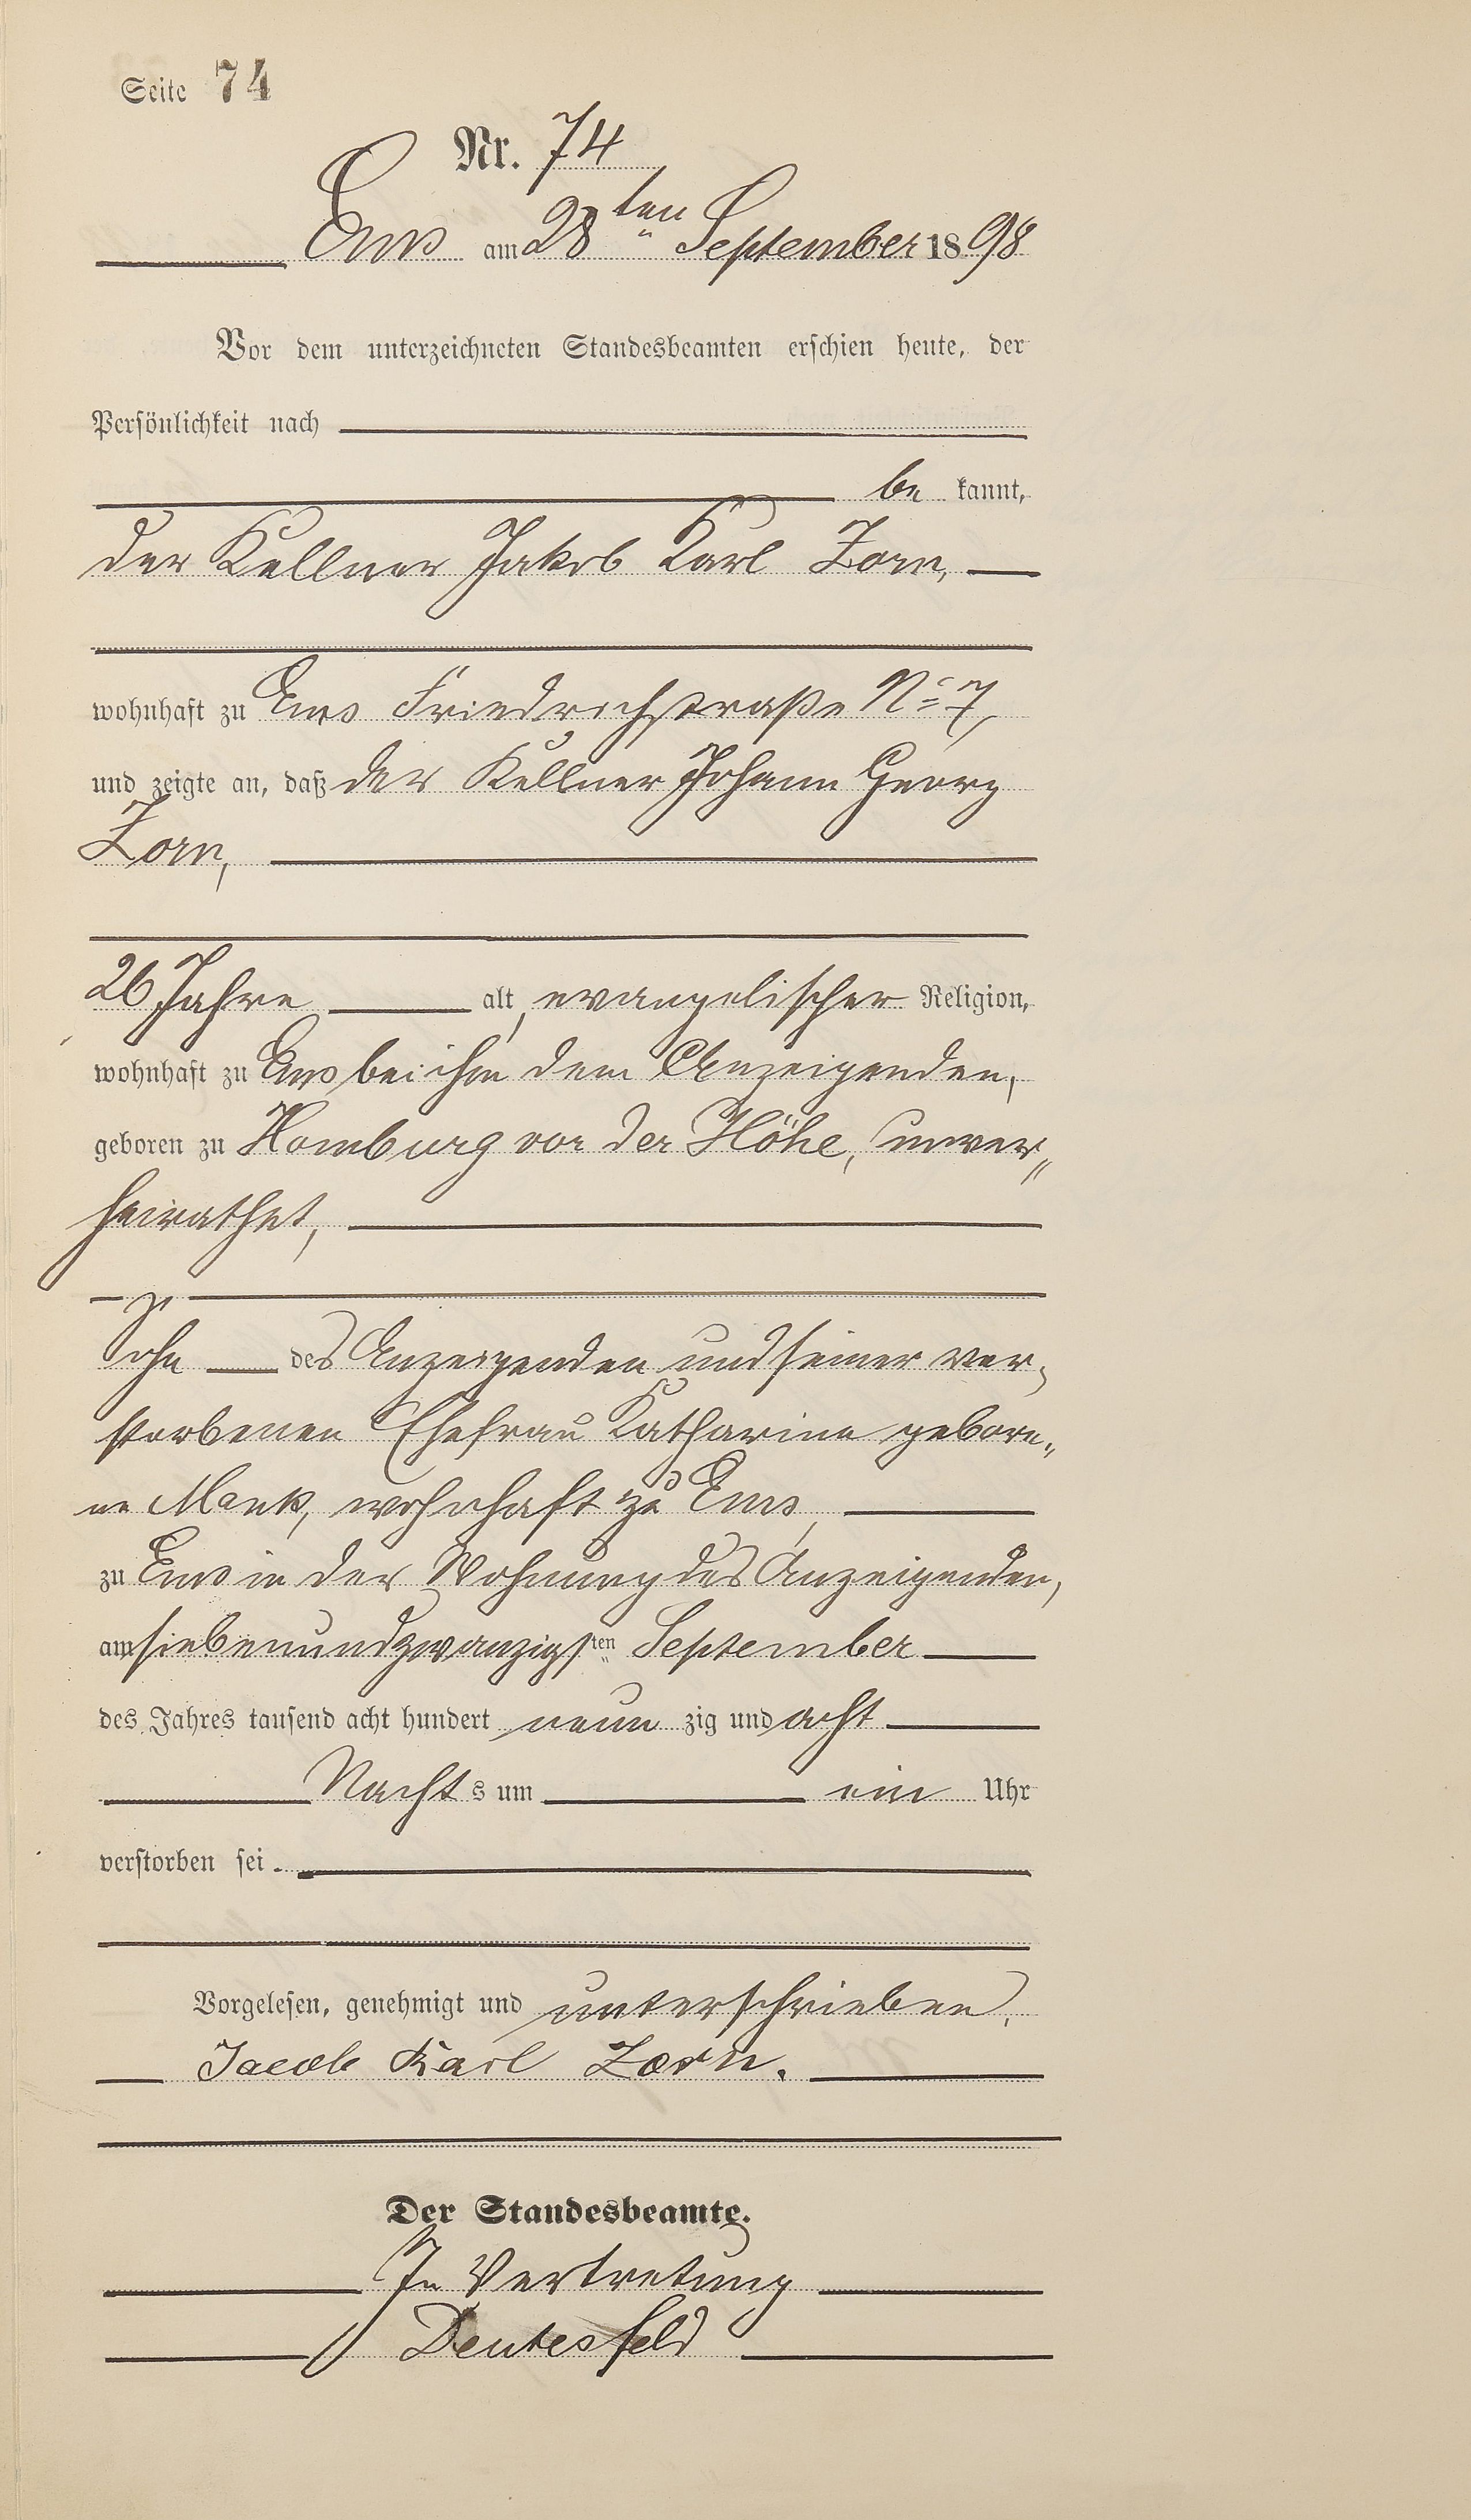 Seite 74
Nr. 74
Ems am 28ten September 1898
Vor dem unterzeichneten Standesbeamten erschien heute, der
Persönlichkeit nach
be kannt,
der Kellner Jakob Karl Zorn,
wohnhaft zu Ems Friedrichstraße No 7,
und zeigte an, daß der Kellner Johann Georg
Zorn,
26 Jahre alt, evangelischer Religion,
wohnhaft zu Ems bei ihm dem Anzeigenden,
geboren zu Homburg vor der Höhe, unver„
heirathet,
Sohn des Anzeigenden und seiner ver„
storbenen Ehefrau Katharina gebore„
ne Mank, wohnhaft zu Ems,
zu Ems in der Wohnung des Anzeigenden,
am siebenundzwanzigsten September
des Jahres tausend acht hundert neun zig und acht
Nachts um ein Uhr
verstorben sei.
Vorgelesen, genehmigt und unterschrieben.
Jacob Karl Zorn.
Der Standesbeamte.
In Vertretung
Deutesfeld